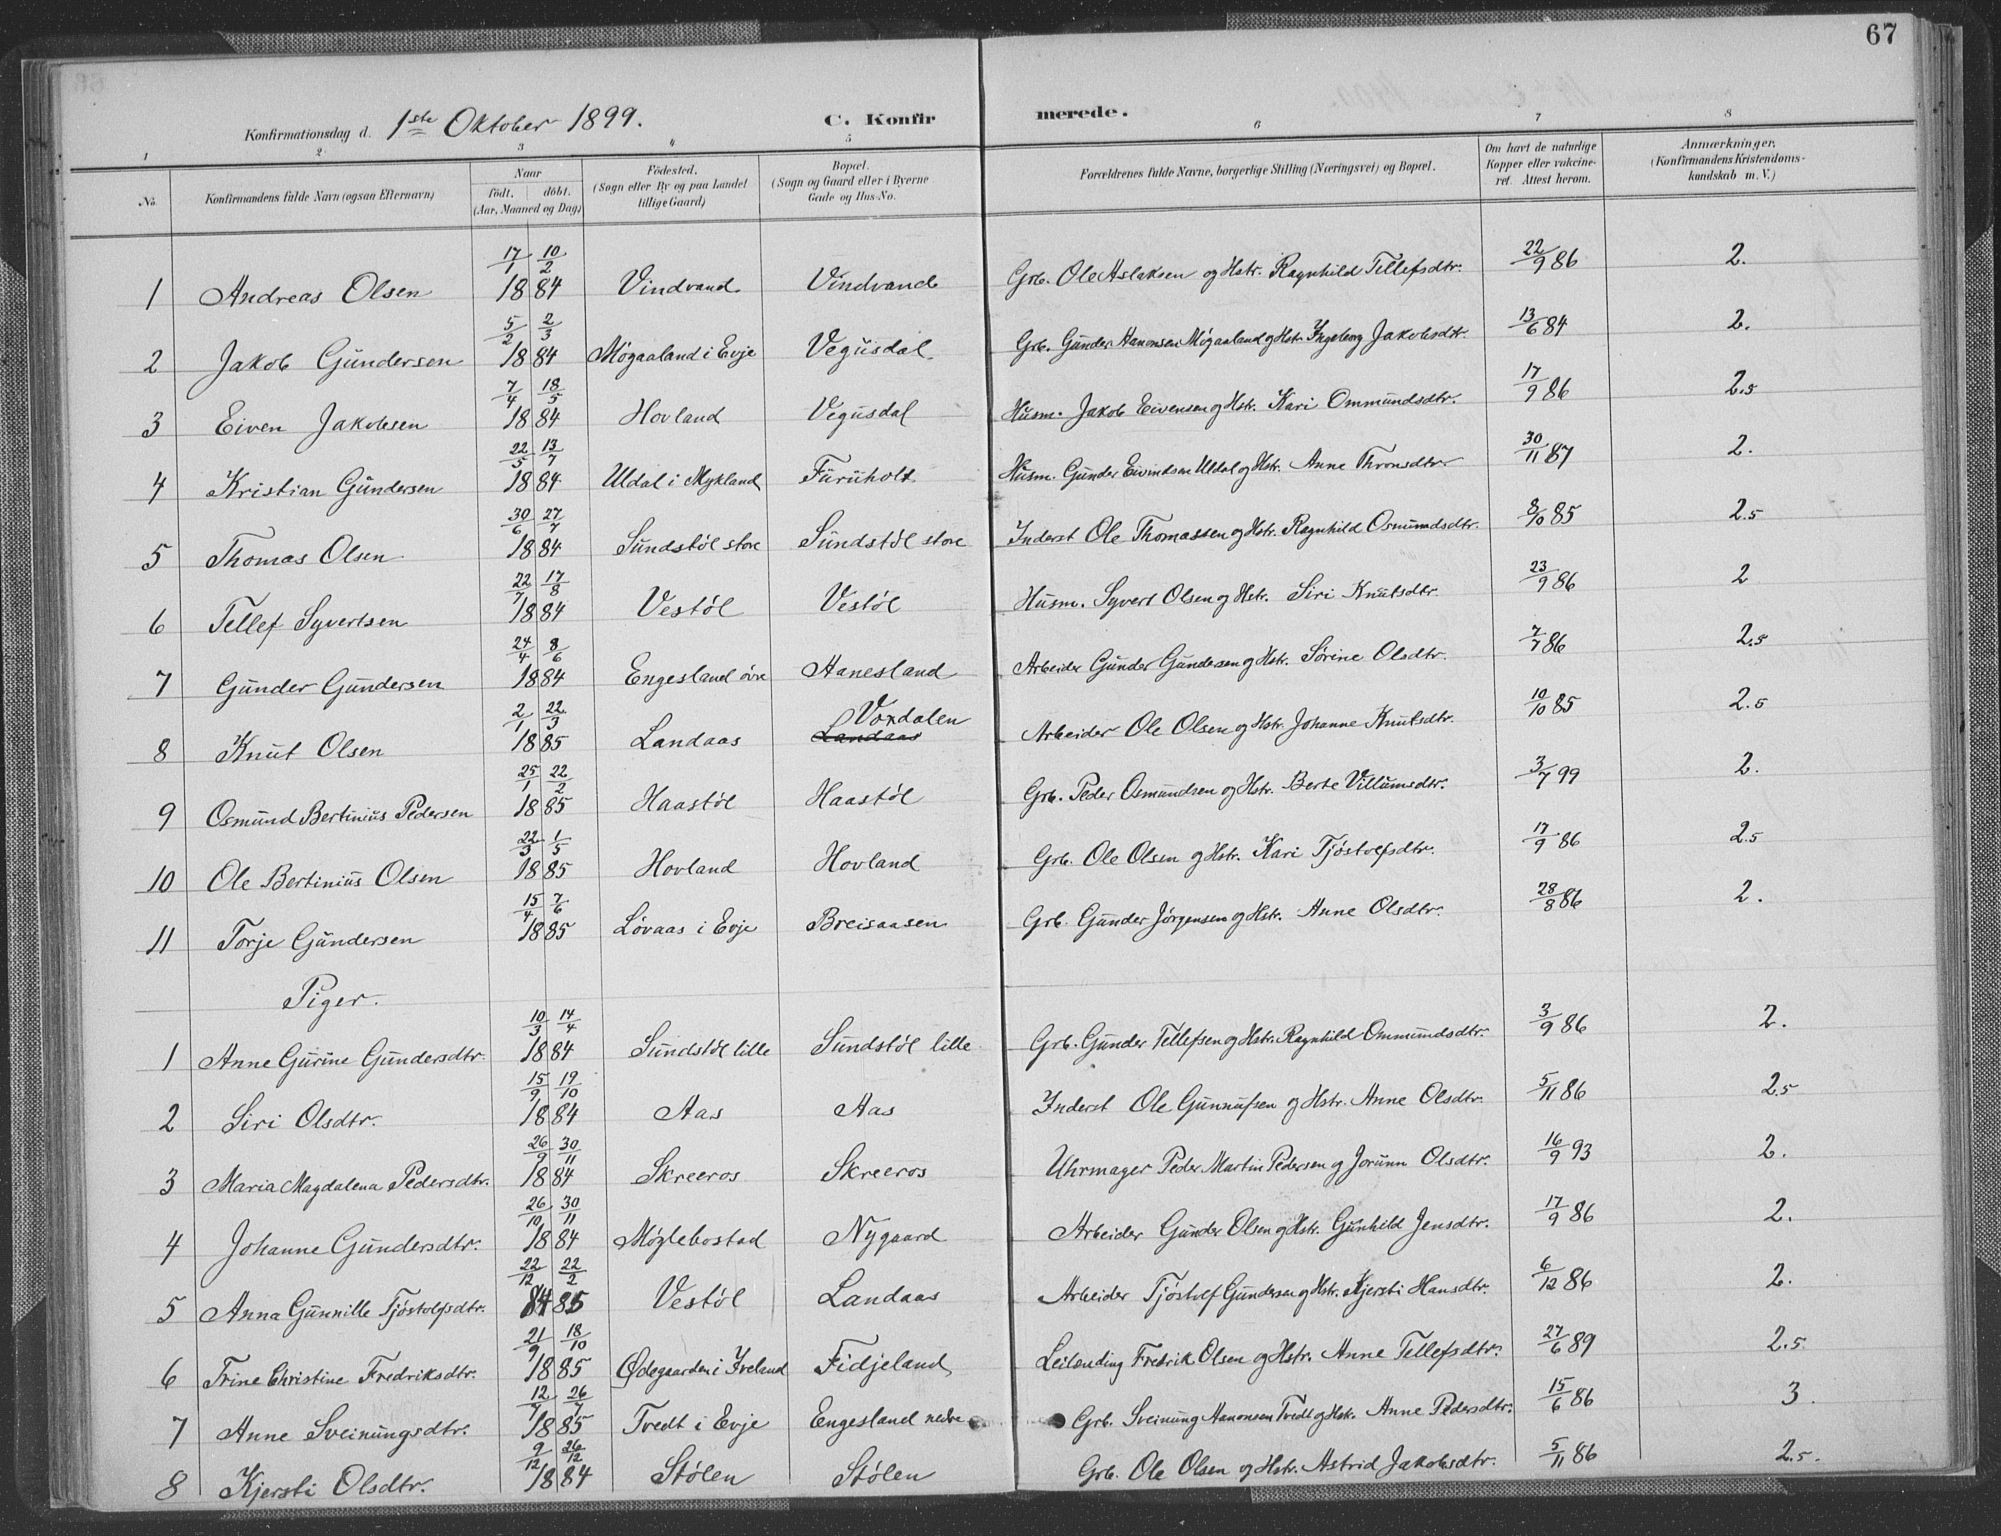 67
Konfirmationsdag d. 1ste Oktober 1899. C. Konfirmerede.
1 2 3 4 5 6 7 8
No. Konfirmandens fulde Navn (ogsaa Efternavn) Naar födt. döbt. (Aar, Maaned og Dag) Födested. (Sogn eller By og paa Landet tillige Gaard) Bopæl. (Sogn og Gaard eller i Byerne Gade og Hus-No. Forældrenes fulde Navne, borgerlige Stilling (Næringsvei) og Bopæl. Om havt de naturlige Kopper eller vakcineret. Attest herom. Anmærkninger. (Konfirmandens Kristendomskundskab m. V.)
1 Andreas Olsen 17/1 10/2 1884 Vindvand Vindvand Grb. Ole Aslaksen og Hstr. Ragnhild Tellefsdtr. 22/9 86 2.
2 Jakob Gundersen 5/2 2/3 1884 Møgaaland i Evje Vegusdal Grb. Gunder Aanonsen Møgaaland og Hstr. Ingeborg Jakobsdtr. 13/6 84 2.
3 Eiven Jakobsen 7/4 18/5 1884 Hovland Vegusdal Husm. Jakob Eivensen og Hstr. Kari Ommundsdtr. 17/9 86 2.5
4 Kristian Gundersen 22/5 13/7 1884 Uldal i Mykland Furuholt Husm. Gunder Eivindsen Uldal og Hstr. Anne Thronsdtr. 30/11 87 2.
5 Thomas Olsen 30/6 27/7 1884 Sundstøl store Sundstøl store Inderst Ole Thomassen og Hstr. Ragnhild Osmundsdtr. 8/10 85 2.5
6 Tellef Syvertsen 22/7 17/8 1884 Vestøl Vestøl Husm. Syvert Olsen og Hstr. Siri Knutsdtr. 23/9 86 2
7 Gunder Gundersen 24/4 8/6 1884 Engesland øvre Hanesland Arbeider Gunder Gundersen og Hstr. Sørine Olsdtr. 7/7 86 2.5
8 Knut Olsen 2/1 22/3 1885 Landaas Landaas Vordalen Arbeider Ole Olsen og Hstr. Johanne Knutsdtr. 10/10 85 2.5
9 Osmund Bertinius Pedersen 25/1 22/2 1885 Haastøl Haastøl Grb. Peder Osmundsen og Hstr. Berte Villumsdtr. 3/7 99 2.
10 Ole Bertinius Olsen 22/3 1/5 1885 Hovland Hovland Grb. Ole Olsen og Hstr. Kari Tjøstolfsdtr. 17/9 86 2.5
11 Torje Gundersen 15/4 7/6 1885 Løvaas i Evje Breisaasen Grb. Gunder Jørgensen og Hstr. Anne Olsdtr. 28/8 86 2.
Piger.
1 Anne Gurine Gundersdtr. 10/3 14/4 1884 Sundstøl lille Sundstøl lille Grb. Gunder Tellefsen og Hstr. Ragnhild Ommundsdtr. 3/9 86 2.
2 Siri Olsdtr. 15/9 19/10 1884 Aas Aas Inderst Ole Gunnufsen og Hstr. Anne Olsdtr. 5/11 86 2.5
3 Maria Magdalena Pedersdtr. 26/9 30/11 1884 Skreeros Skreeros Uhrmager Peder Martin Pedersen og Jorunn Olsdtr. 16/9 93 2.
4 Johanne Gundersdtr. 26/10 30/11 1884 Møglebostad Nygaard Arbeider Gunder Olsen og Hstr. Gunhild Jensdtr. 17/9 86 2.
5 Anna Gunnille Tjøstolfsdtr. 22/12 22/2 84 85 Vestøl Landaas Arbeider Tjøstolf Gundersen og Hstr. Kjersti Hansdtr. 6/12 86 2.
6 Trine Christine Fredriksdtr. 21/9 18/10 1885 Ødegaarden i Iveland Fidjeland Leilending Fredrik Olsen og Hstr. Anne Tellefsdtr. 27/6 89 2.5
7 Anne Sveinungsdtr. 12/7 26/7 1885 Tvedt i Evje Engesland nedre Grb. Sveinung Aanonsen Tvedt og Hstr. Anne Pedersdtr. 15/6 86 3.
8 Kjersti Olsdtr. 9/12 26/12 1884 Stølen Stølen Grb. Ole Olsen og Hstr. Astrid Jakobsdtr. 5/11 86 2.5.